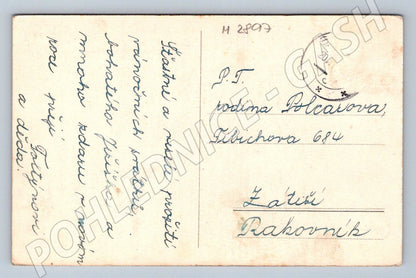 M 2897
Šťastné a veselé prožití
vánočních svátků,
bohatého Ježíška a
mnoho zdaru v novém
roce přejí
Foltýnovi
a děda.
P. T.
rodina Polcarova,
Fibichova 684
Zátiší
Rakovník
POHLEDNICE - CASH